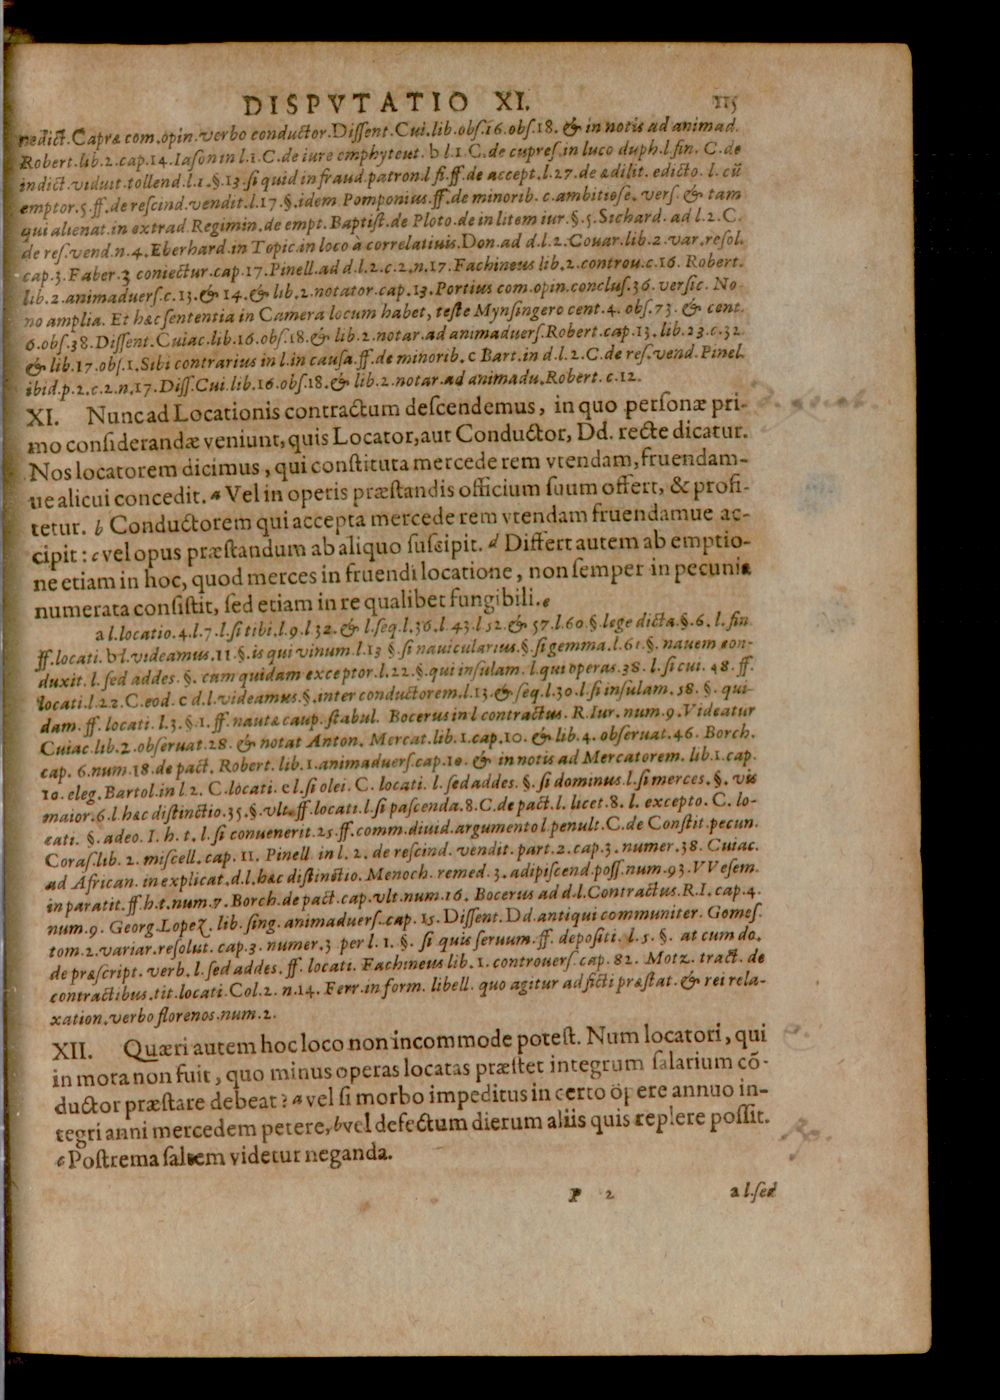 DISPVTATIO XI. 115
nedict. Capræ com. opin. verbo conductor. Dissent. Cui. lib. obs. 16. obs. 18. & in notis ad animad.
Robert. lib. 2. cap. 14. Iason in l. 1. C. de iure emphyteut. b l. 1. C. de cupres. in luco duph. l. fin. C. de
indict. viduit. tollend. l. 1. §. 13. si quid in fraud. patron. l. fi. ff. de accept. l. 27. de ædilit. edicto. l. cū
emptor. 5. ff. de rescind. vendit. l. 17. §. idem Pomponius. ff. de minorib. c. ambitiose. vers. & tam
qui alienat. in extrad. Regimin. de empt. Baptist. de Ploto. de in litem iur. §. 5. Sichard. ad l. 2. C.
de res. vend. n. 4. Eberhard. in Topic. in loco à correlatiuis. Don. ad d. l. 2. Couar. lib. 2. var. resol.
cap. 3. Faber. 3 coniectur. cap. 17. Pinell. ad d. l. 2. c. 2. n. 17. Fachineus lib. 2. controu. c. 16. Robert.
lib. 2. animaduers. c. 13. & 14. & lib. 2. notator. cap. 13. Portius com. opin. conclus. 36. versic. No-
no amplia. Et hæc sententia in Camera locum habet, teste Mynsingero cent. 4. obs. 73. & cent.
6. obs. 38. Dissent. Cuiac. lib. 16. obs. 18. & lib. 2. notar. ad animaduers. Robert. cap. 13. lib. 23. c. 32.
& lib. 17. obs. 1. Sibi contrarius in l. in causa. ff. de minorib. c Bart. in d. l. 2. C. de res. vend. Pinel.
ibid. p. 2. c. 2. n. 17. Diss. Cui. lib. 16. obs. 18. & lib. 2. notar. ad animadu. Robert. c. 12.
XI. Nunc ad Locationis contractum descendemus, in quo personæ pri-
mo considerandæ veniunt, quis Locator, aut Conductor, Dd. recte dicatur.
Nos locatorem dicimus, qui constituta mercede rem vtendam, fruendam-
ue alicui concedit. a Vel in operis præstandis officium suum offert, & profi-
tetur. b Conductorem qui accepta mercede rem vtendam fruendamue ac-
cipit: c vel opus præstandum ab aliquo suscipit. d Differt autem ab emptio-
ne etiam in hoc, quod merces in fruendi locatione, non semper in pecunia
numerata consistit, sed etiam in re qualibet fungibili. e
a l. locatio. 4. l. 7. l. si tibi. l. 9. l 32. & l. seq. l. 36. l 43. l 52. & 57. l. 60. §. lege dicta. §. 6. l. fin.
ff. locati. b l. videamus. 11 §. is qui vinum. l. 13 §. si nauicularius. §. si gemma. l. 61. §. nauem con-
duxit. l. sed addes. §. cum quidam exceptor. l. 22. §. qui insulam. l. qui operas. 38. l. si cui. 48. ff.
locati. l. 22. C. eod. c d. l. videamus. §. inter conductorem. l. 13. & seq. l. 30. l. si insulam. 58. §. qui-
dam. ff. locati. l. 3. §. 1. ff. nautæ caup. stabul. Bocerus in l contractus. R. Iur. num. 9. Videatur
Cuiac. lib. 2. obseruat. 28. & notat Anton. Mercat. lib. 1. cap. 10. & lib. 4. obseruat. 46. Borch.
cap. 6. num. 18. de pact. Robert. lib. 1. animaduers. cap. 10. & in notis ad Mercatorem. lib. 1. cap.
10. eleg. Bartol. in l 2. C. locati. e l. si olei. C. locati. l. sed addes. §. si dominus. l. si merces. §. vis
maior. 6. l. hæc distinctio. 35. §. vlt. ff. locati. l. si pascenda. 8. C. de pact. l. licet. 8. l. excepto. C. lo-
cati. §. adeo. I. h. t. l. si conuenerit. 25. ff. comm. diuid. argumento l. penult. C. de Constit. pecun.
Coras. lib. 2. miscell. cap. 11. Pinell. in l. 2. de rescind. vendit. part. 2. cap. 3. numer. 38. Cuiac.
ad African. in explicat. d. l. hæc distinctio. Menoch. remed. 3. adipiscend. poss. num. 93. VVesem.
in paratit. ff. h. t. num. 7. Borch. de pact. cap. vlt. num. 16. Bocerus ad d. l. Contractus. R. I. cap. 4.
num. 9. Georg. Lopez. lib. sing. animaduers. cap. 15. Dissent. Dd. antiqui communiter. Gomes.
tom. 2. variar. resolut. cap. 3. numer. 3 per l. 1. §. si quis seruum. ff. depositi. l. 5. §. at cum do.
de præscript. verb. l. sed addes. ff. locati. Fachineus lib. 1. controuers. cap. 82. Motz. tract. de
contractibus. tit. locati. Col. 2. n. 14. Ferr. in form. libell. quo agitur ad ficti præstat. & rei rela-
xation. verbo florenos. num. 2.
XII. Quæri autem hoc loco non incommode potest. Num locatori, qui
in mora non fuit, quo minus operas locatas præstet integrum salarium cō-
ductor præstare debeat? a vel si morbo impeditus in certo opere annuo in-
tegri anni mercedem petere, b vel defectum dierum aliis quis replere possit.
c Postrema saltem videtur neganda.
P 2 a l. sed